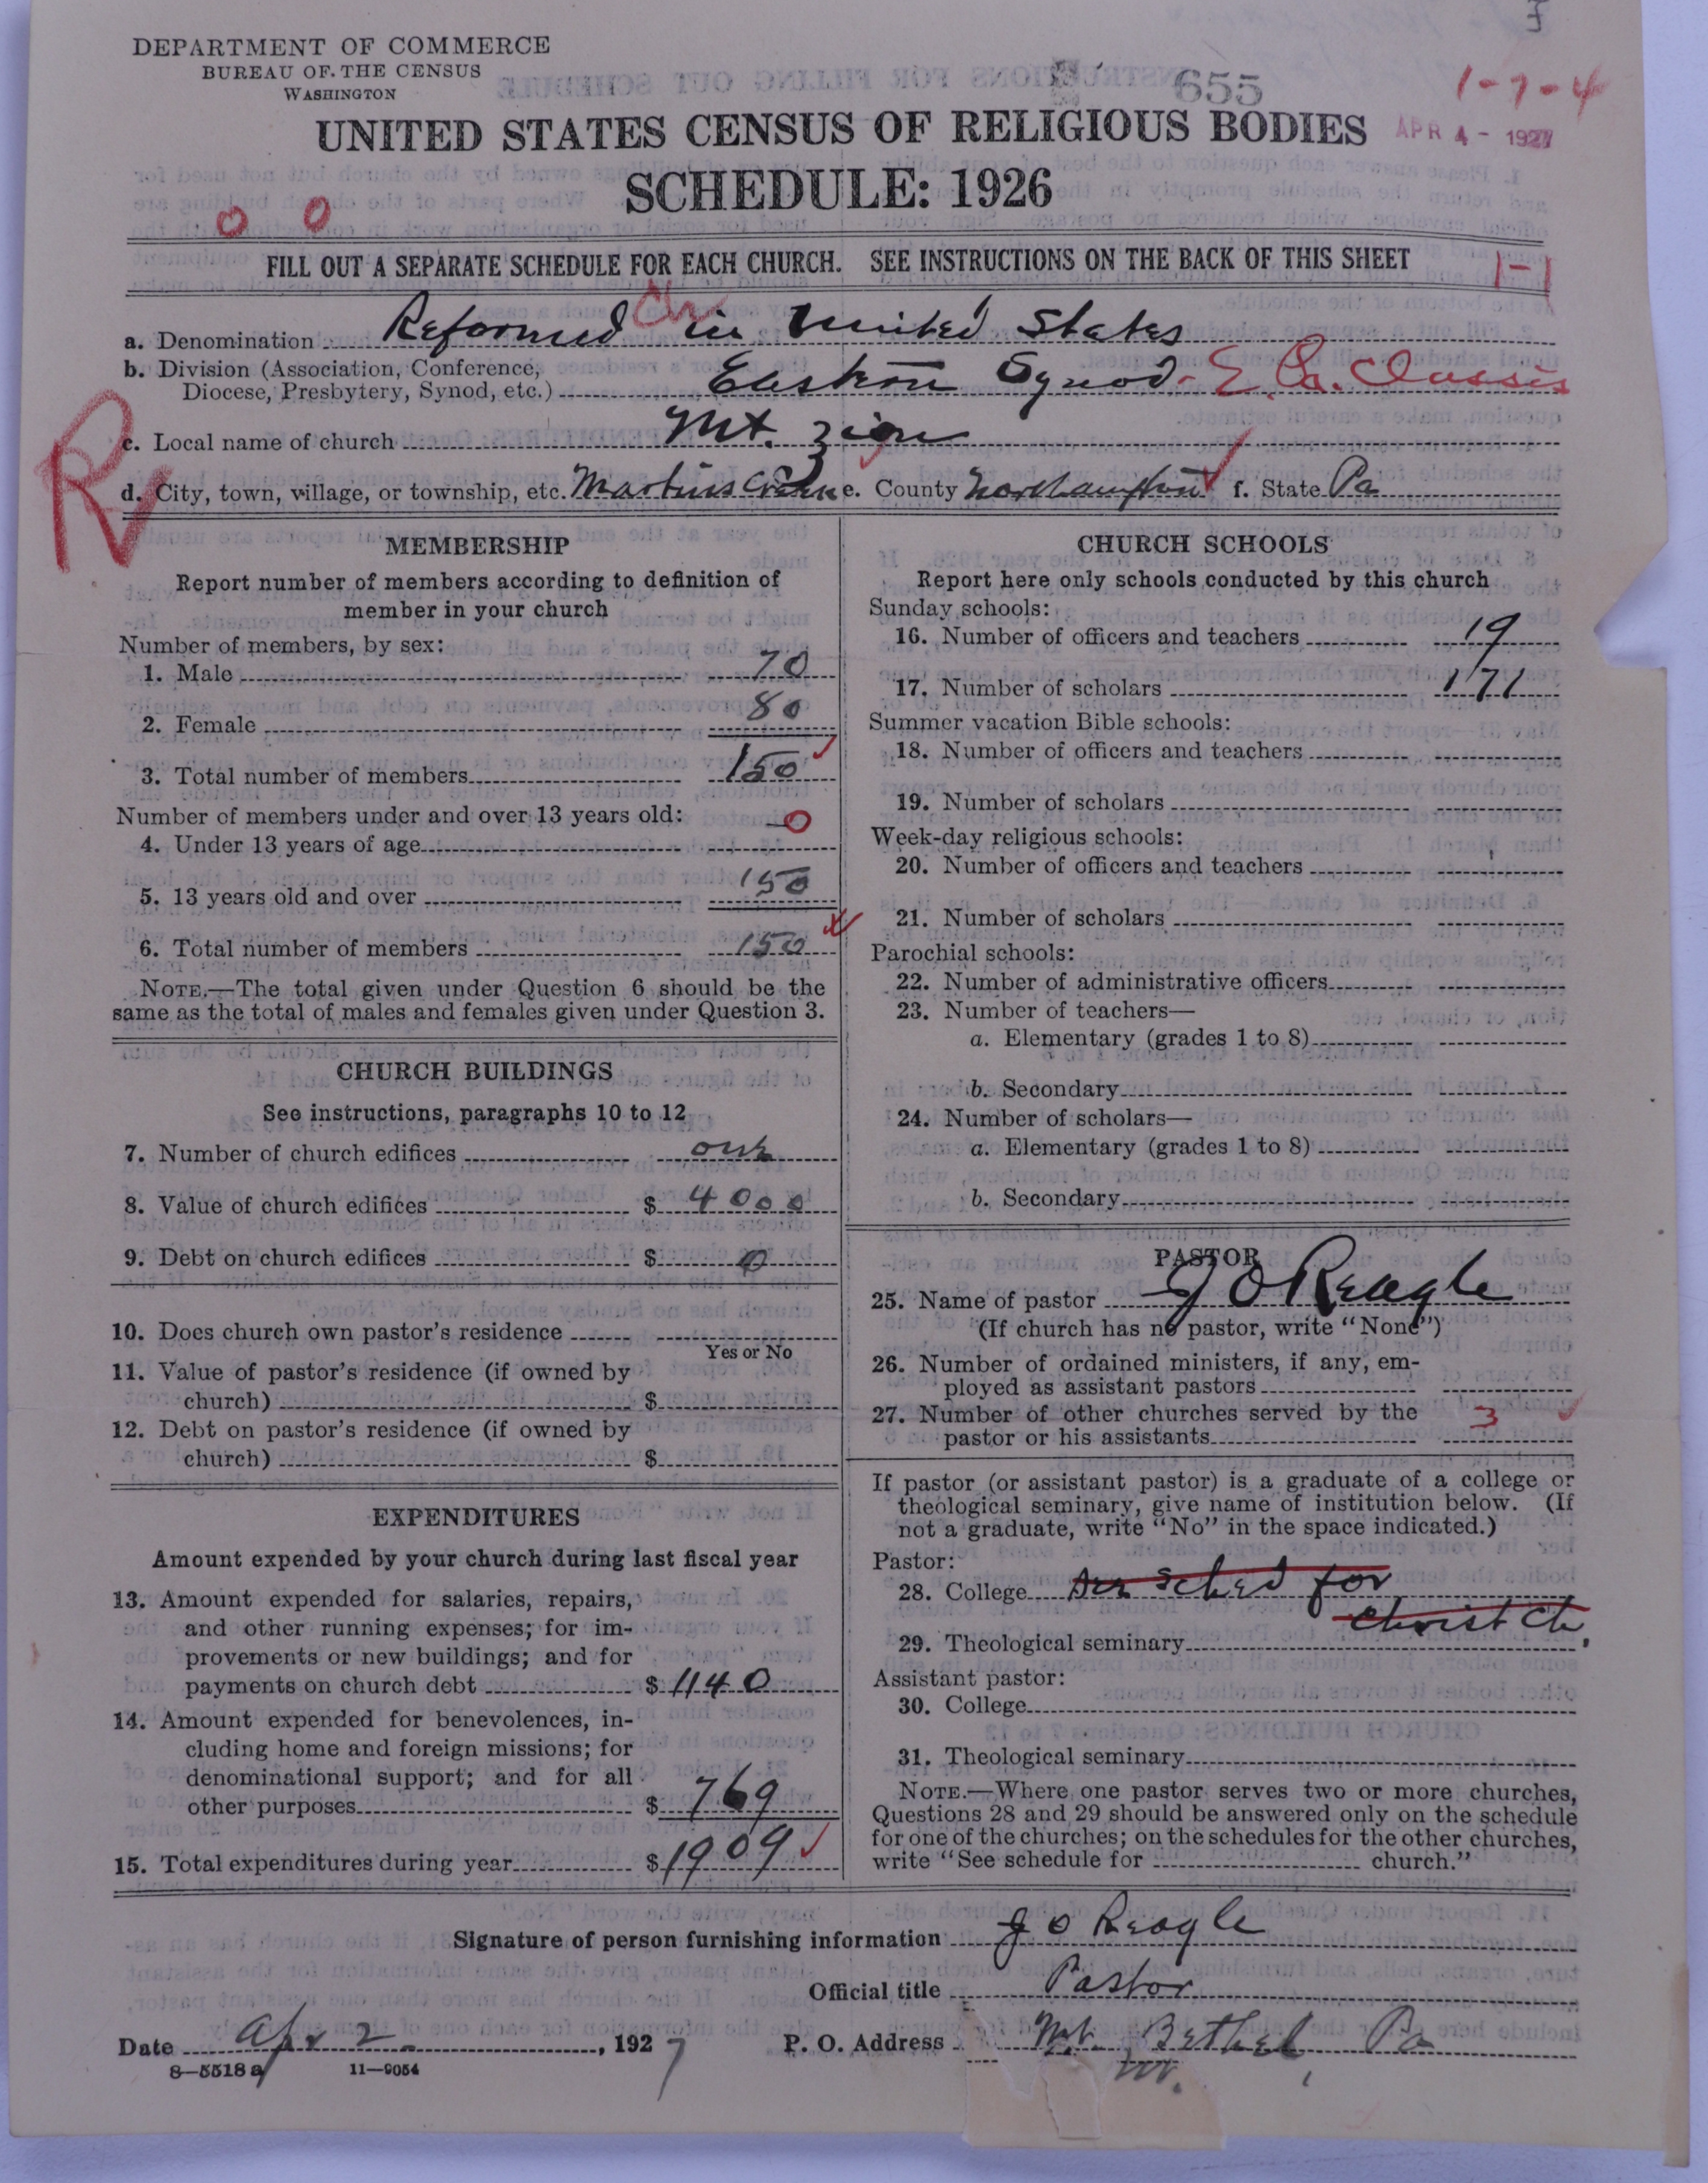 DEPARTMENT OF COMMERCE
BUREAU OF THE CENSUS
WASHINGTON
655
1-7-4
UNITED STATES CENSUS OF RELIGIOUS BODIES
APR 4 - 1927
SCHEDULE: 1926
0 0
FILL OUT A SEPARATE SCHEDULE FOR EACH CHURCH. SEE INSTRUCTIONS ON THE BACK OF THIS SHEET
1-1
a. Denomination Reformed Ch in United States
b. Division (Association, Conference,
Diocese, Presbytery, Synod, etc.) Eastern Synod - E. Pa. Classis
R
c. Local name of church Mt. Zion
d. City, town, village, or township, etc. Martins Creek e. County Northampton f. State Pa
MEMBERSHIP
Report number of members according to definition of
member in your church
Number of members, by sex:
1. Male 70
2. Female 80
3. Total number of members 150
Number of members under and over 13 years old:
4. Under 13 years of age 0
5. 13 years old and over 150
6. Total number of members 150
NOTE.—The total given under Question 6 should be the
same as the total of males and females given under Question 3.
CHURCH BUILDINGS
See instructions, paragraphs 10 to 12
7. Number of church edifices one
8. Value of church edifices $ 4000
9. Debt on church edifices $ 0
10. Does church own pastor's residence
Yes or No
11. Value of pastor's residence (if owned by
church) $
12. Debt on pastor's residence (if owned by
church) $
EXPENDITURES
Amount expended by your church during last fiscal year
13. Amount expended for salaries, repairs,
and other running expenses; for im-
provements or new buildings; and for
payments on church debt $ 1140
14. Amount expended for benevolences, in-
cluding home and foreign missions; for
denominational support; and for all
other purposes $ 769
15. Total expenditures during year $ 1909
CHURCH SCHOOLS
Report here only schools conducted by this church
Sunday schools:
16. Number of officers and teachers 19
17. Number of scholars 171
Summer vacation Bible schools:
18. Number of officers and teachers
19. Number of scholars
Week-day religious schools:
20. Number of officers and teachers
21. Number of scholars
Parochial schools:
22. Number of administrative officers
23. Number of teachers—
a. Elementary (grades 1 to 8)
b. Secondary
24. Number of scholars—
a. Elementary (grades 1 to 8)
b. Secondary
PASTOR
25. Name of pastor J O Reagle
(If church has no pastor, write "None")
26. Number of ordained ministers, if any, em-
ployed as assistant pastors
27. Number of other churches served by the
pastor or his assistants 3
If pastor (or assistant pastor) is a graduate of a college or
theological seminary, give name of institution below. (If
not a graduate, write "No" in the space indicated.)
Pastor:
28. College See Sched for
29. Theological seminary Christ Ch.
Assistant pastor:
30. College
31. Theological seminary
NOTE.—Where one pastor serves two or more churches,
Questions 28 and 29 should be answered only on the schedule
for one of the churches; on the schedules for the other churches,
write "See schedule for church."
Signature of person furnishing information J O Reagle
Official title Pastor
Date Apr 2, 1927 P. O. Address Mt. Bethel, Pa
8—5518a 11—9054